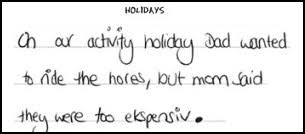 HOLIDAYS
On our activity holiday Dad wanted
to ride the hores, but mom said
they were too ekspensiv.